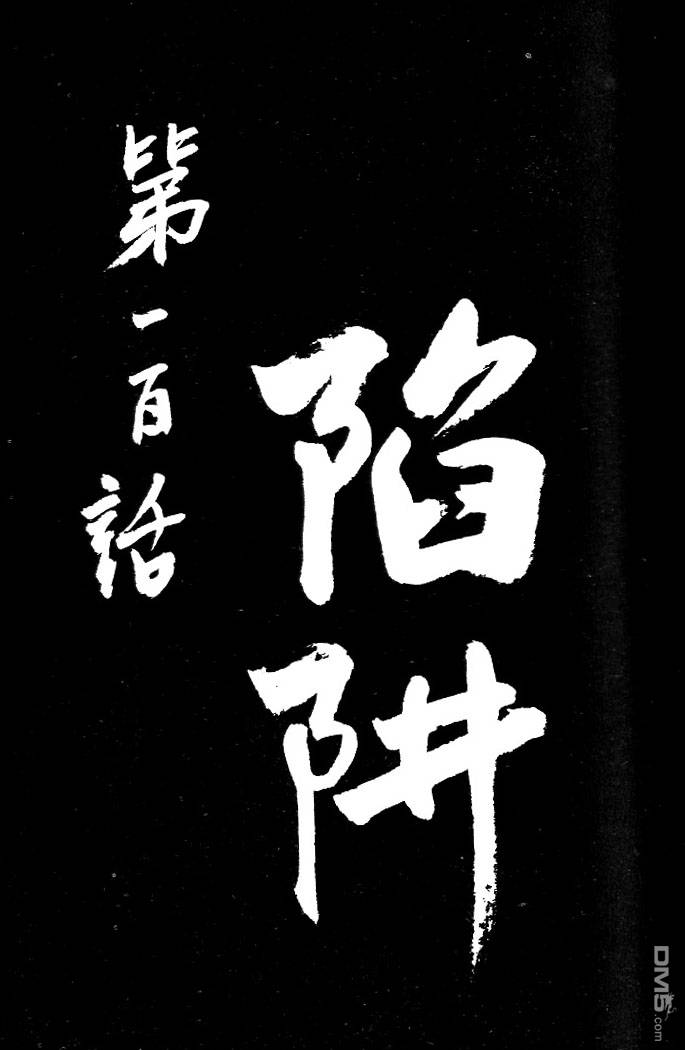 第一百話
陷阱
DM5.com